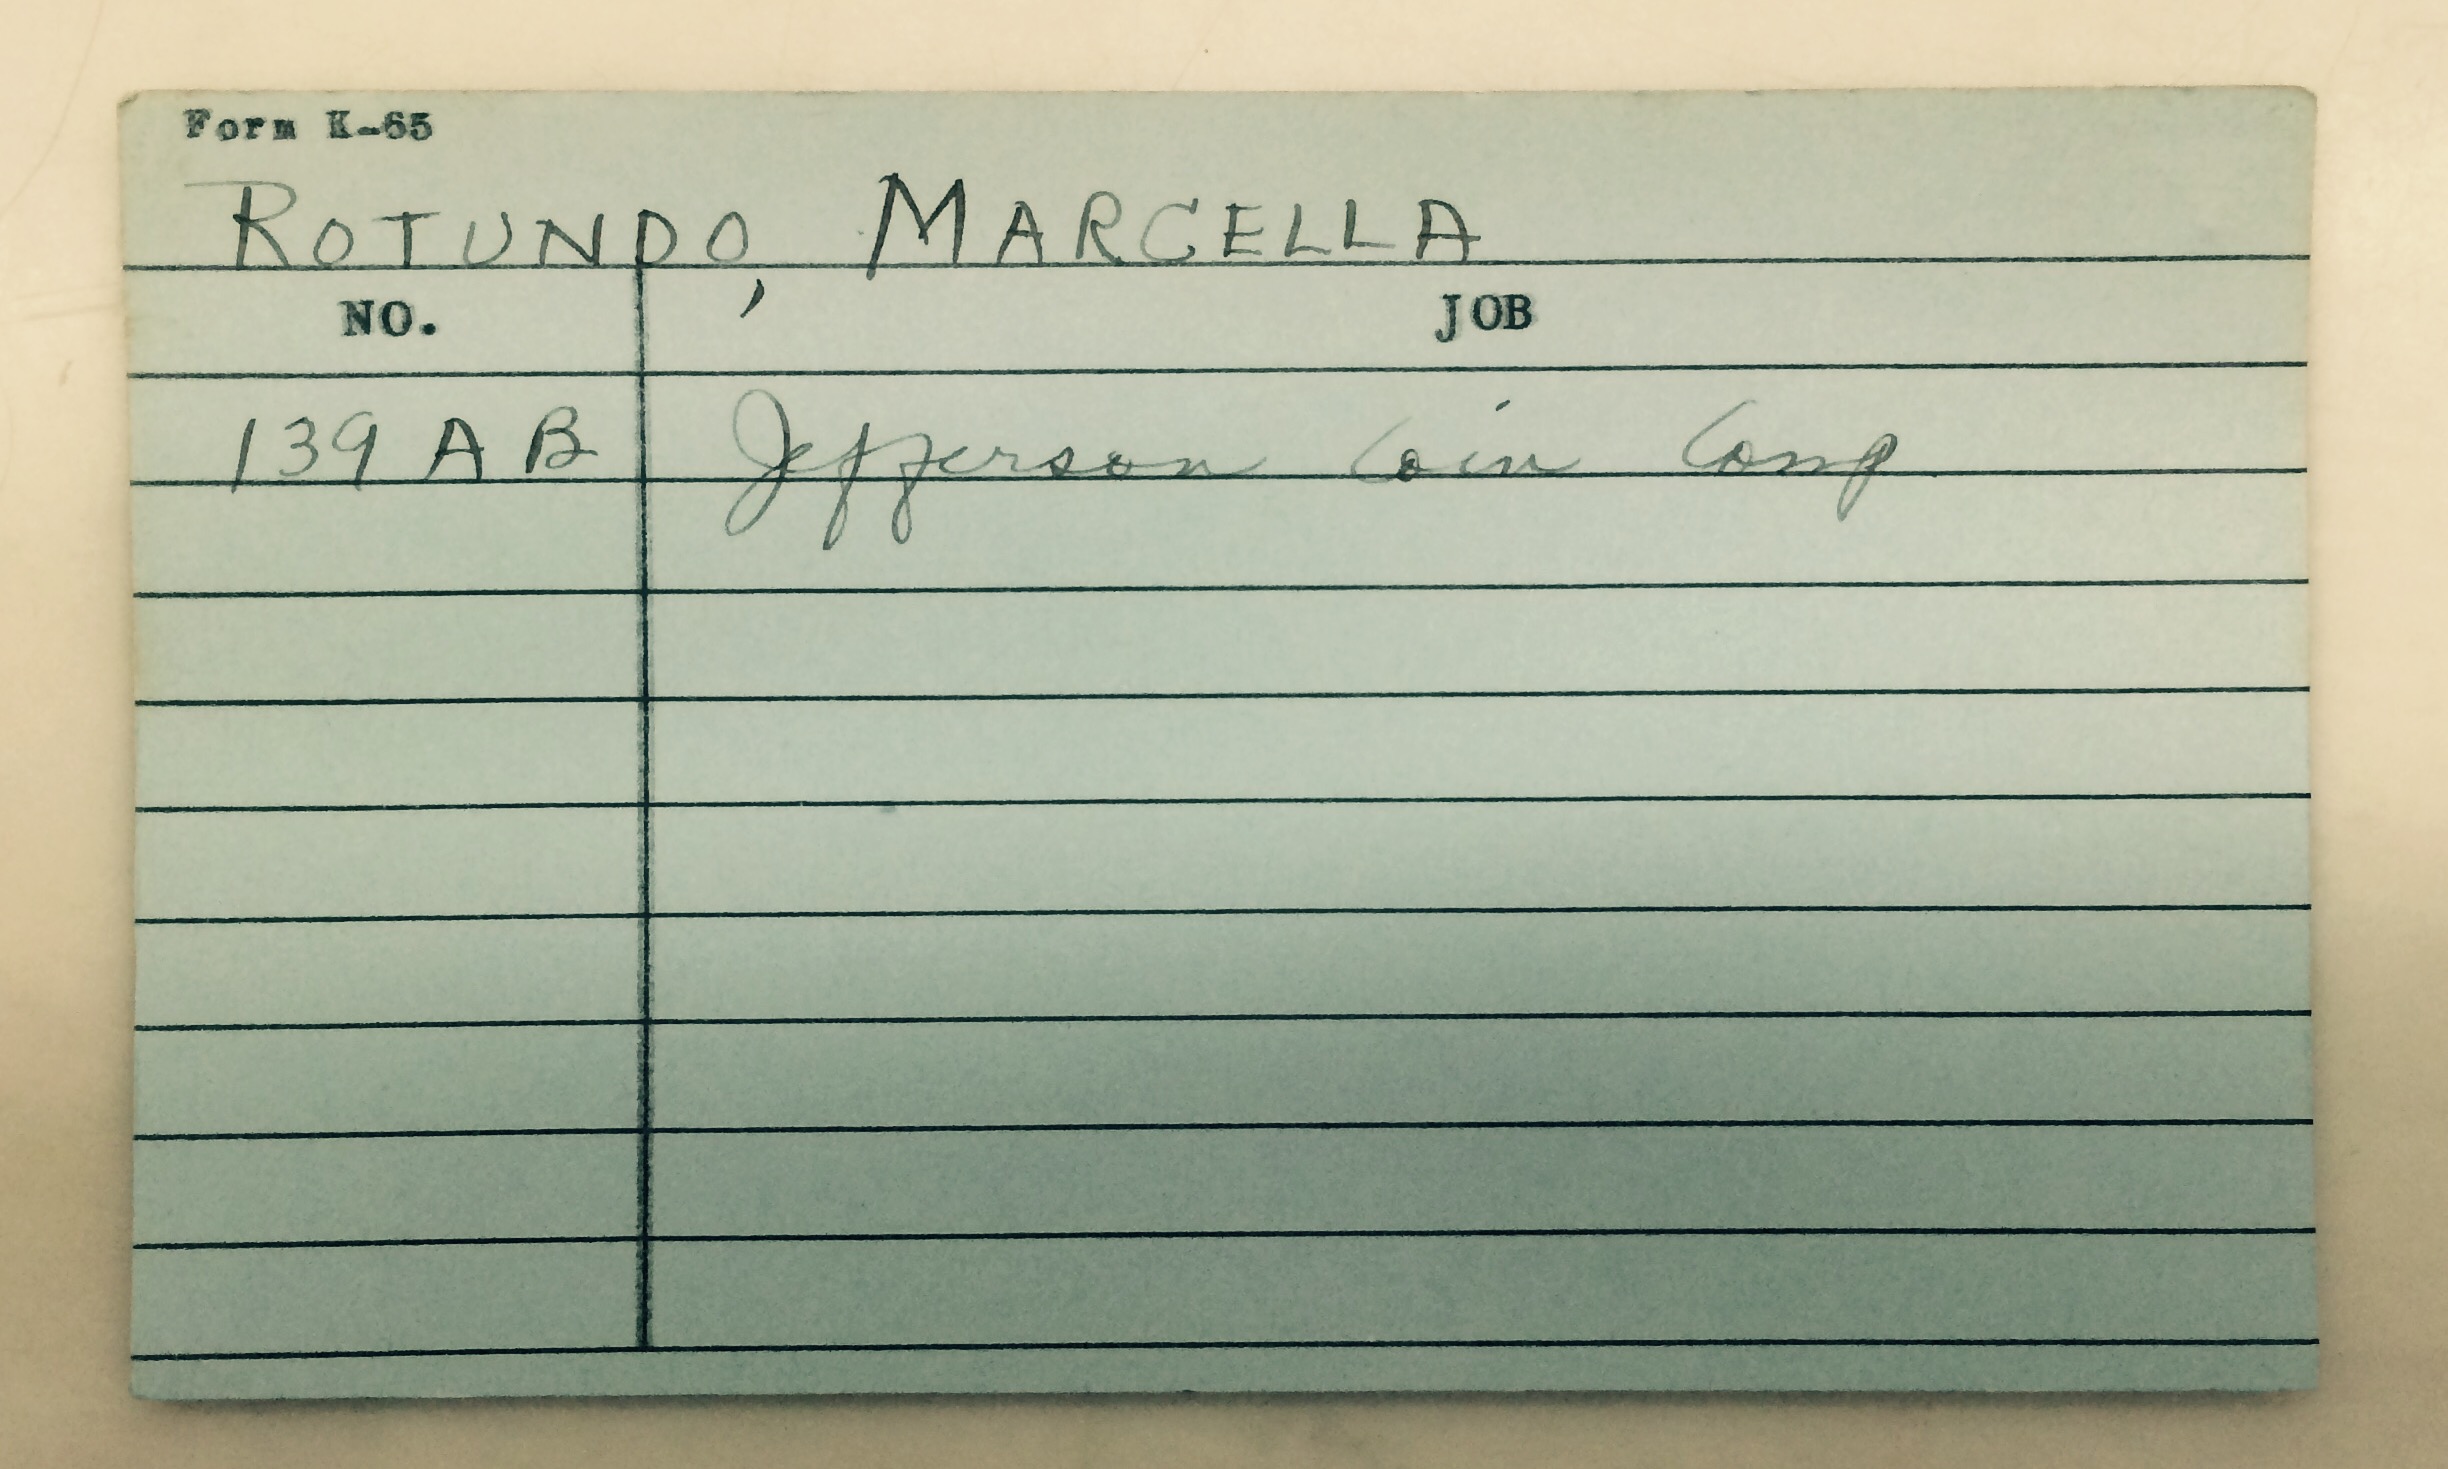 Form K-65
ROTUNDO, MARCELLA
NO. JOB
139 A B Jefferson Coin Comp